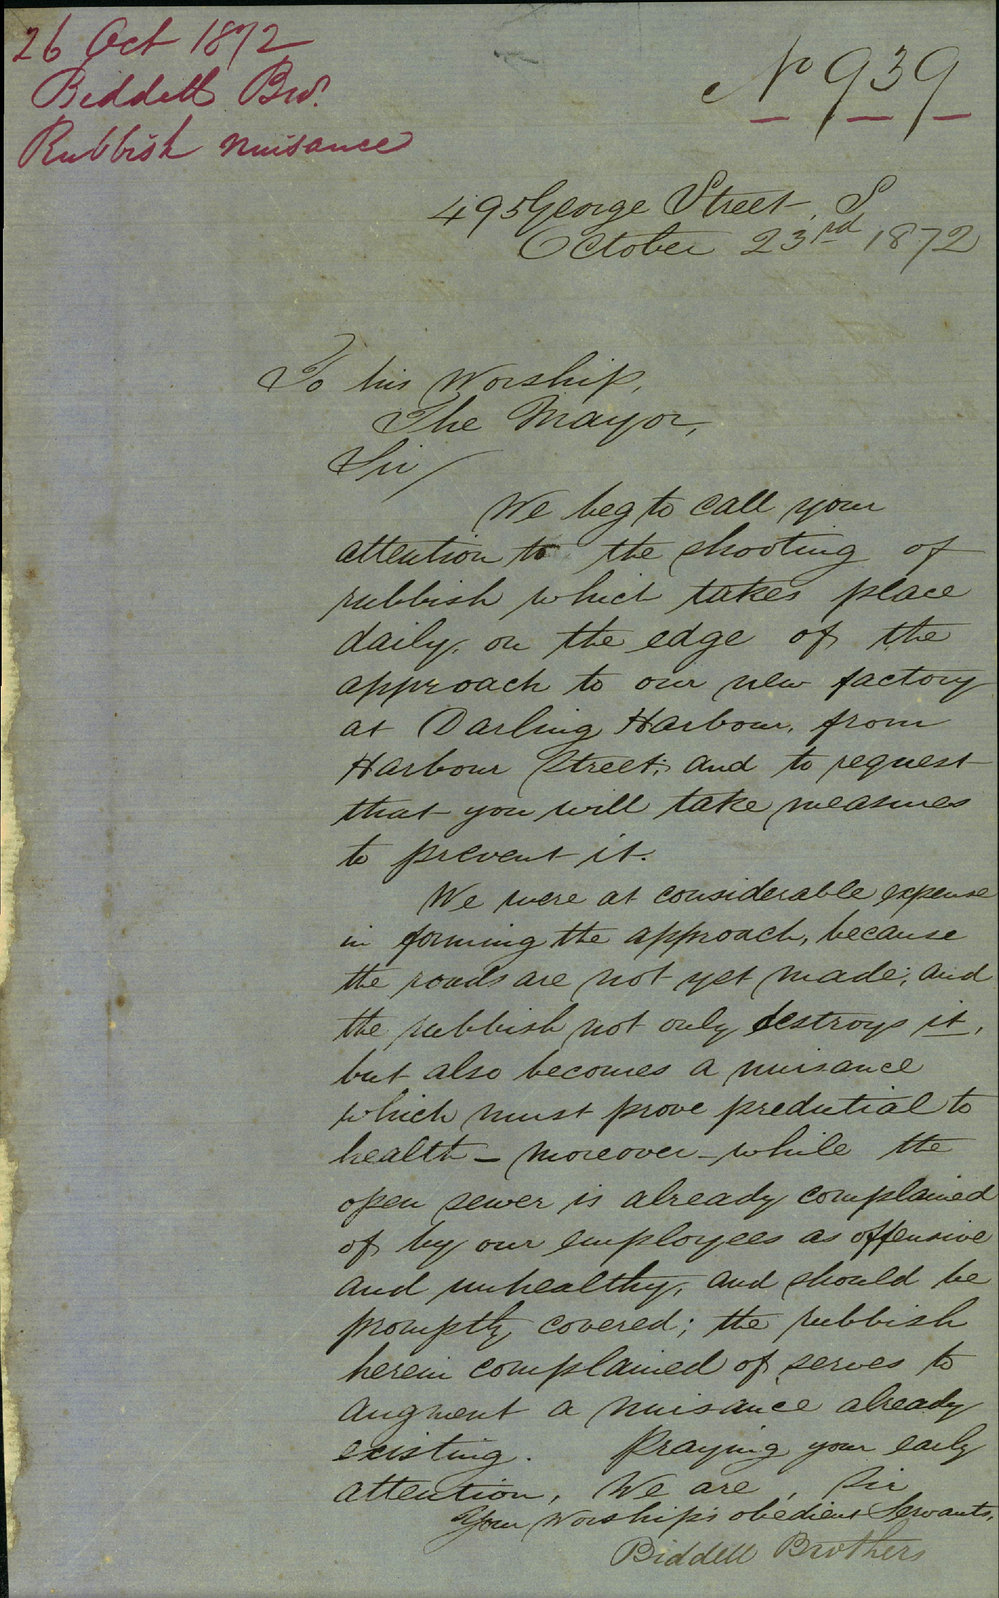 26 Oct 1872
Biddell Bros.
Rubbish nuisance
No 939
495 George Street, S
October 23rd 1872
To his Worship,
The Mayor,
Sir/
We beg to call your
attention to the shooting of
rubbish which takes place
daily, on the edge of the
approach to our new factory
at Darling Harbour, from
Harbour Street; and to request
that you will take measures
to prevent it.
We were at considerable expense
in forming the approach, because
the roads are not yet made; and
the rubbish not only destroys it,
but also becomes a nuisance
which must prove predutial to
health – moreover – while the
open sewer is already complained
of by our employees as offensive
and unhealthy, and should be
promptly covered; the rubbish
herein complained of serves to
augment a nuisance already
existing. Praying your early
attention, We are, Sir
Your Worship's obedient Servants,
Biddell Brothers